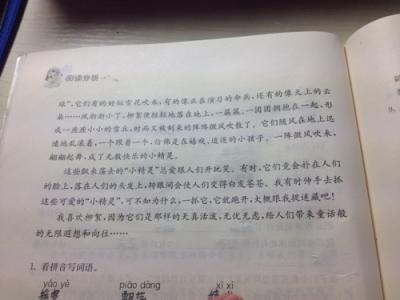 阅读分析
球”,它们有的好似雪花吹来,有的像正在演习的伞兵,还有的像天上的云
朵……风渐渐小了,柳絮便轻轻地落在地上,一层层、一团团拥抱在一起,形
成一座座小小的雪丘,时而又被刮来的阵阵微风吹散了。它们随风在地上迅
速地乱滚着,一个跟着一个,仿佛是在嬉戏、追逐的小孩子。一阵微风吹来,
翩翩起舞,成了无数快乐的小精灵。
这些飘来荡去的“小精灵”总爱跟人们开玩笑。有时,它们竟会扑在人们
的脸上,落在人们的头发上,转眼间会使人们变得白发苍苍。我有时伸手去抓
这些可爱的“小精灵”,可不知为什么,一抓它,它就跑开,大概跟我捉迷藏吧!
我喜欢柳絮,因为它们是那样的天真活泼,无忧无虑,给人们带来童话般
的无限遐想和向往……
1. 看拼音写词语。
yáo yè piāo dàng xī xì